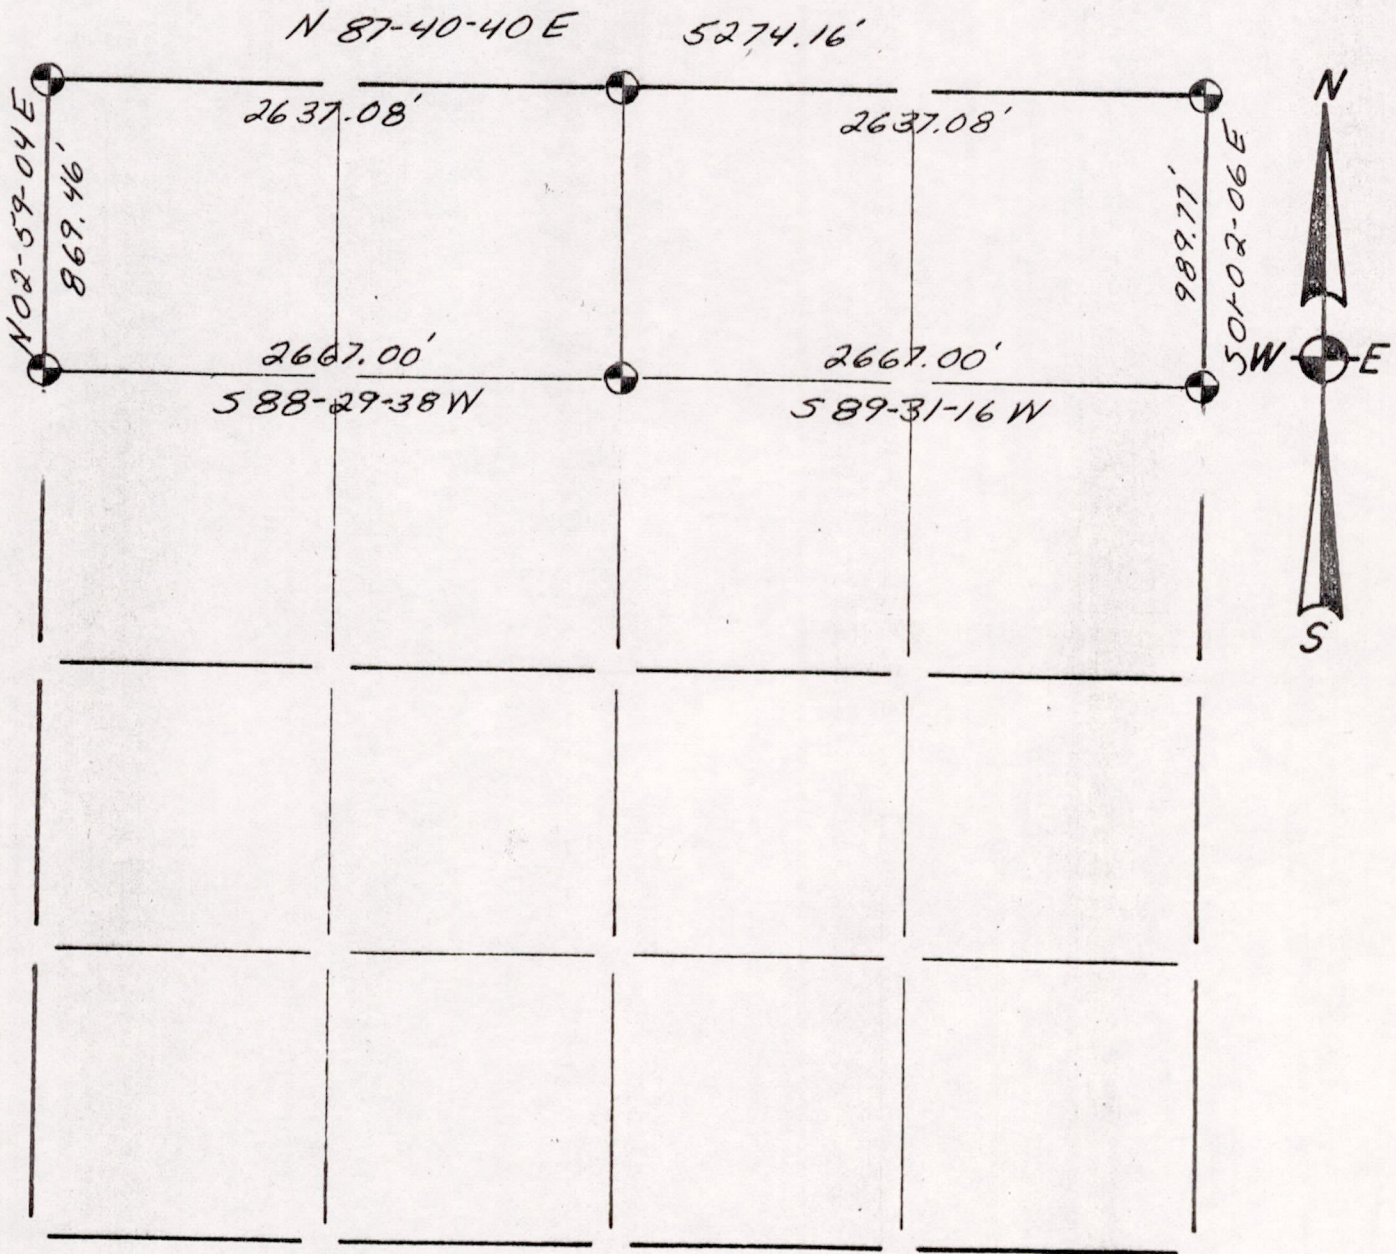 N 87-40-40 E 5274.16'
2637.08' 2637.08'
N02-59-04 E
869.46'
989.77'
S01-02-06 E
2667.00' 2667.00'
S 88-29-38 W S 89-31-16 W
N
W E
S